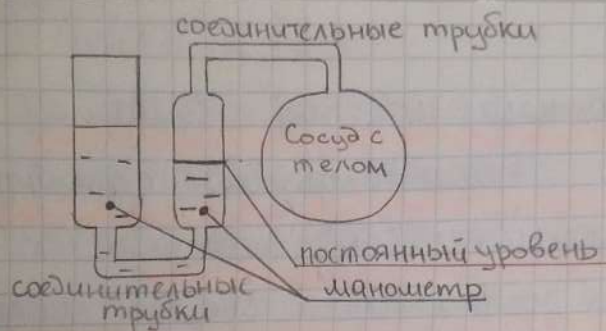 соединительные трубки
Сосуд с
телом
постоянный уровень
манометр
соединительные
трубки